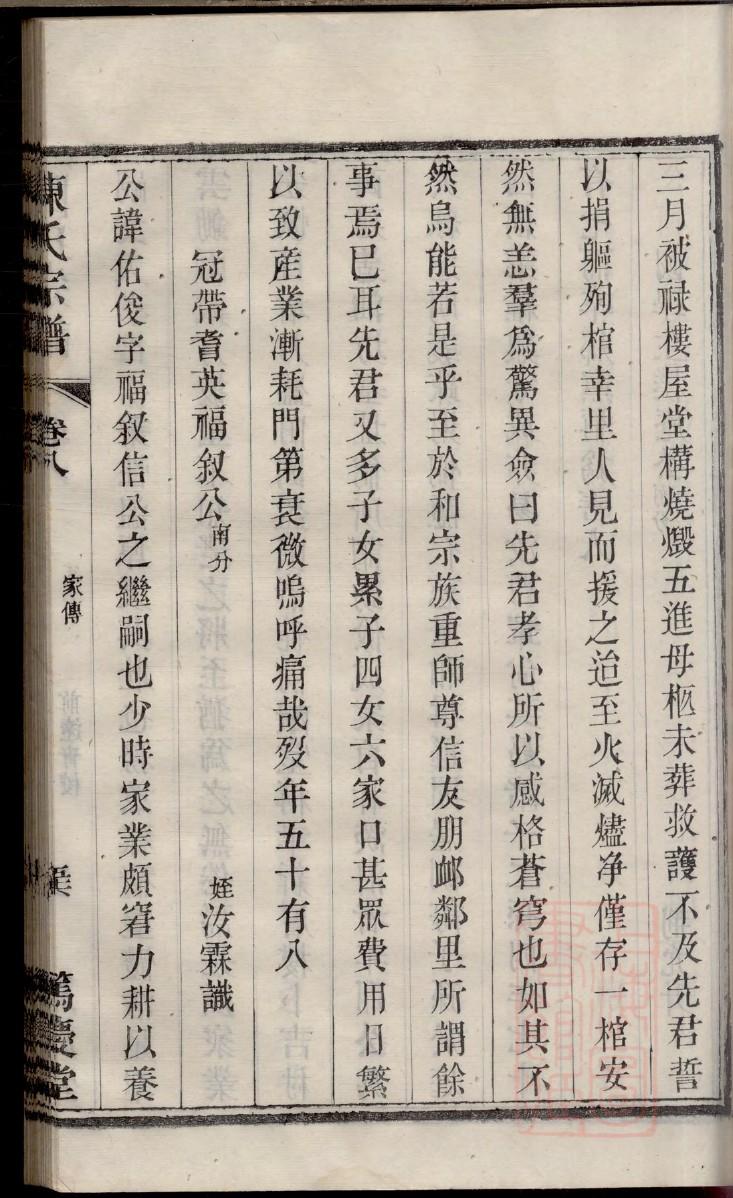 三月被祿樓屋堂構燒燬五進母柩未葬救護不及先君誓
以捐軀殉棺幸里人見而援之迨至火滅燼净僅存一棺安
然無恙羣爲驚異僉曰先君孝心所以感格蒼穹也如其不
然烏能若是乎至於和宗族重師尊信友朋卹鄰里所謂餘
事焉已耳先君又多子女累子四女六家口甚眾費用日繁
以致産業漸耗門第衰微嗚呼痛哉殁年五十有八
冠帶耆英福叙公南分 姪汝霖識
公諱佑俊字福叙信公之繼嗣也少時家業頗窘力耕以養
陳氏宗譜 卷八 家傳 篤慶堂